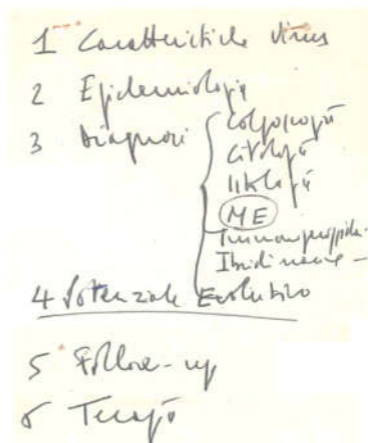 1 Caratteristiche virus
2 Epidemiologia
3 Diagnosi
Colposcopia
Citologia
Istologia
ME
Immunoperossida-
Ibridizzazione -
4 Potenziale Evolutivo
5 Follow-up
6 Terapia